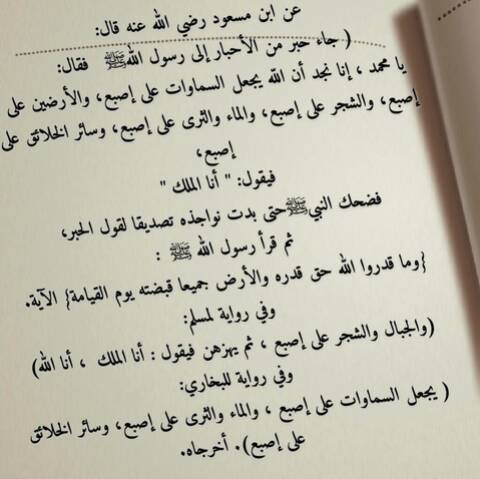 عن ابن مسعود رضي الله عنه قال:
( جاء حبر من الأحبار إلى رسول اللهﷺ فقال:
يا محمد ، إنا نجد أن الله يجعل السماوات على إصبع، والأرضين على
إصبع، والشجر على إصبع، والماء والثرى على إصبع، وسائر الخلائق على
إصبع،
فيقول: " أنا الملك "
فضحك النبيﷺحتى بدت نواجذه تصديقا لقول الحبر،
ثم قرأ رسول الله ﷺ :
{وما قدروا الله حق قدره والأرض جميعا قبضته يوم القيامة} الآية.
وفي رواية لمسلم:
(والجبال والشجر على إصبع ، ثم يهزهن فيقول : أنا الملك ، أنا الله)
وفي رواية للبخاري:
( يجعل السماوات على إصبع ، والماء والثرى على إصبع، وسائر الخلائق
على إصبع). أخرجاه.